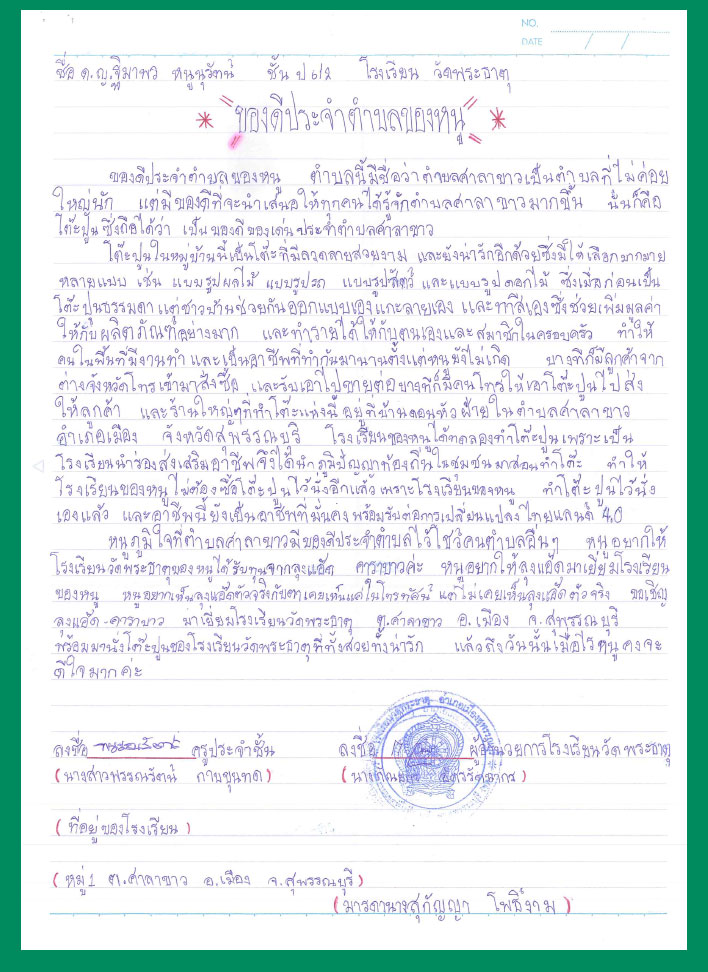 NO.
DATE / /
ชื่อ ด.ญ.ฐิมาพร หนูนุรัตน์ ชั้น ป.6/2 โรงเรียน วัดพระธาตุ
* "ของดีประจำตำบลของหนู" *
ของดีประจำตำบลของหนู ตำบลนี้มีชื่อว่าตำบลศาลาขาวเป็นตำบลที่ไม่ค่อย
ใหญ่นัก แต่มีของดีที่จะนำเสนอให้ทุกคนได้รู้จักตำบลศาลาขาวมากขึ้น นั้นก็คือ
โต๊ะปูนซึ่งถือได้ว่า เป็นของดีของเด่นประจำตำบลศาลาขาว
โต๊ะปูนในหมู่บ้านนี้เป็นโต๊ะที่มีลวดลายสวยงาม และยังน่ารักอีกด้วยซึ่งมีให้เลือกมากมาย
หลายแบบ เช่น แบบรูปผลไม้ แบบรูปรถ แบบรูปสัตว์ และแบบรูปดอกไม้ ซึ่งเมื่อก่อนเป็น
โต๊ะปูนธรรมดา แต่ชาวบ้านช่วยกันออกแบบเองแกะลายเอง และทาสีเองซึ่งช่วยเพิ่มมูลค่า
ให้กับผลิตภัณฑ์อย่างมาก และทำรายได้ให้กับตนเองและสมาชิกในครอบครัว ทำให้
คนในพื้นที่มีงานทำ และเป็นอาชีพที่ทำกันมานานตั้งแต่หนูยังไม่เกิด บางทีก็มีลูกค้าจาก
ต่างจังหวัดโทรเข้ามาสั่งซื้อ และรับเอาไปขายต่อบางทีก็มีคนโทรให้เอาโต๊ะปูนไปส่ง
ให้ลูกค้า และร้านใหญ่ๆที่ทำโต๊ะแห่งนี้ อยู่ที่บ้านดอนหัวฝ้ายในตำบลศาลาขาว
อำเภอเมือง จังหวัดสุพรรณบุรี โรงเรียนของหนูได้ทดลองทำโต๊ะปูนเพราะเป็น
โรงเรียนนำร่องส่งเสริมอาชีพจึงได้นำภูมิปัญญาท้องถิ่นในชุมชนมาสอนทำโต๊ะ ทำให้
โรงเรียนของหนูไม่ต้องซื้อโต๊ะปูนไว้นั่งอีกแล้ว เพราะโรงเรียนของหนู ทำโต๊ะปูนไว้นั่ง
เองแล้ว และอาชีพนี้ยังเป็นอาชีพที่มั่นคง พร้อมรับต่อการเปลี่ยนแปลงไทยแลนด์ 4.0
หนูภูมิใจที่ตำบลศาลาขาวมีของดีประจำตำบลไว้โชว์คนตำบลอื่นๆ หนูอยากให้
โรงเรียนวัดพระธาตุของหนูได้รับทุนจากลุงแอ๊ด คาราบาวค่ะ หนูอยากให้ลุงแอ๊ดมาเยี่ยมโรงเรียน
ของหนู หนูอยากเห็นลุงแอ๊ดตัวจริงกับตา เคยเห็นแค่ในโทรทัศน์ แต่ไม่เคยเห็นลุงแอ๊ดตัวจริง ขอเชิญ
ลุงแอ๊ด-คาราบาว มาเยี่ยมโรงเรียนวัดพระธาตุ ต.ศาลาขาว อ.เมือง จ.สุพรรณบุรี
พร้อมมานั่งโต๊ะปูนของโรงเรียนวัดพระธาตุที่ทั้งสวยทั้งน่ารัก แล้วถึงวันนั้นเมื่อไรหนูคงจะ
ดีใจมากค่ะ
ลงชื่อ ครูประจำชั้น ลงชื่อ ผู้อำนวยการโรงเรียนวัดพระธาตุ
(นางสาวพรรณรัตน์ กาบขุนทด)
(ที่อยู่ของโรงเรียน)
(หมู่1 ต.ศาลาขาว อ.เมือง จ.สุพรรณบุรี)
(มารดานางสุกัญญา โพธิ์งาม)